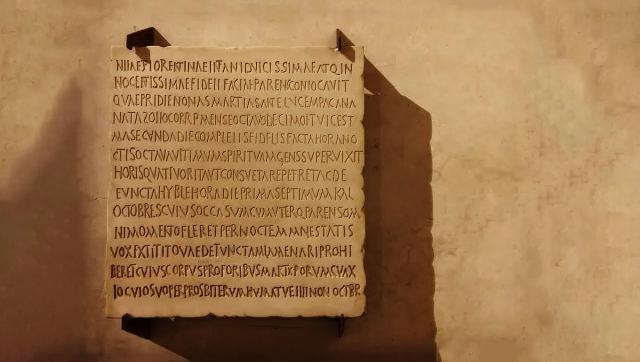 IVLIAE FLORENTINAE INFANTI DVLCISSIMAE ATQ IN
NOCENTISSIMAE FIDELI FACTAE PARENS CONLOCAVIT
QVAE PRIDIE NONAS MARTIAS ANTE LVCEM PAGANA
NATA ZOILO CORR P MENSE OCTAVO DECIMO ET VICES
IMA SECVNDA DIE COMPLETIS FIDELIS FACTA HORA NO
CTIS OCTAVA VLTIMVM SPIRITVM AGENS SVPERVIXIT
HORIS QVATTVOR ITA VT CONSVETA REPETERET AC DE
FVNCTA HYBLE HORA DIE PRIMA SEPTIMVM KAL
OCTOBRES CVIVS OCCASVM CVM VTERQ PARENS OM
NI MOMENTO FLERET PER NOCTEM MAIESTATIS
VOX EXTITIT QVAE DEFVNCTAM LAMENTARI PROHI
BERET CVIVS CORPVS PRO FORIBVS MARTYRORVM CVM
LOCVLO SVO PER PROSBITERVM HVMATV E IIII NON OCTBR